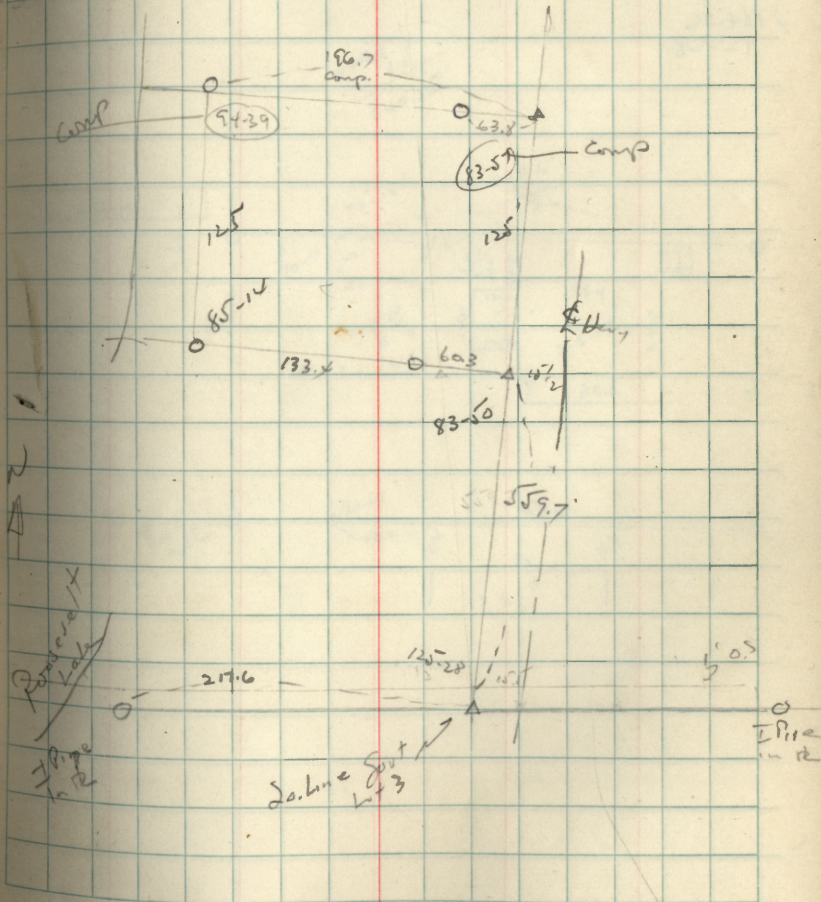 196.7
comp.
Comp
94-39
63.8
83-51
Comp
125
125
85-14
133.4
60.3
15 1/2
83-50
559.7
N
Roosevelt
Lake
217.6
125-28
0.5
I Pipe
in R
I Pipe
in R
So. Line Govt
Lot 3